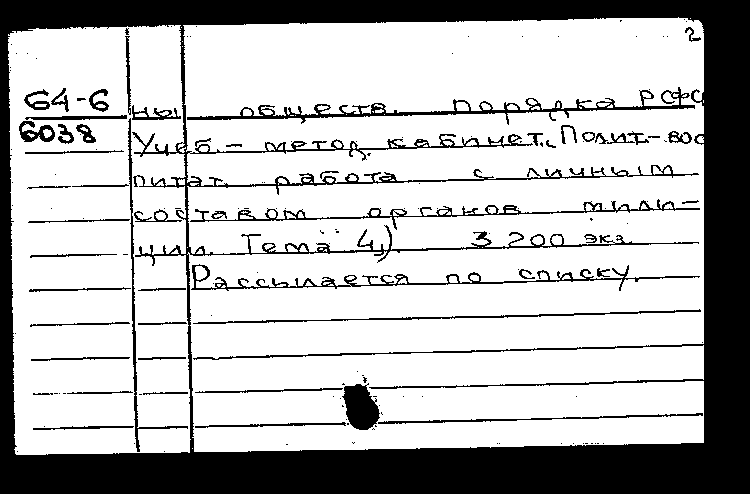 2
64-6
6038
ны обществ. порядка РСФС
Учеб.- метод. кабинет. „Полит.- вос
питат. работа с личным
составом органов мили-
ции. Тема 4„) 3 200 экз.
Рассылается по списку.